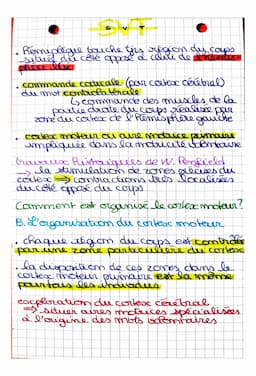 SVT
. Hémiplégie touche tjrs région du corps
située du côté opposé à celui de
. commande corticale (par cortex cérébral)
du mvt controlatérale
↳ commande des muscles de la
partie droite du corps réalisée par
zone du cortex de l'Hémisphère gauche
. cortex moteur ou aire motrice primaire
impliquée dans la motricité volontaire
travaux Historiques de W. Penfield
→ la stimulation de zones précises du
cortex ⇒ contractions très localisées
du côté opposé du corps
Comment est organisé le cortex moteur?
B. L'organisation du cortex moteur
. chaque région du corps est contrôlée
par une zone particulière du cortex
. la disposition de ces zones dans le
cortex moteur primaire est la même
pour tous les individus
exploration du cortex cérébral
⇒ situer aires motrices spécialisées
à l'origine des mvts volontaires